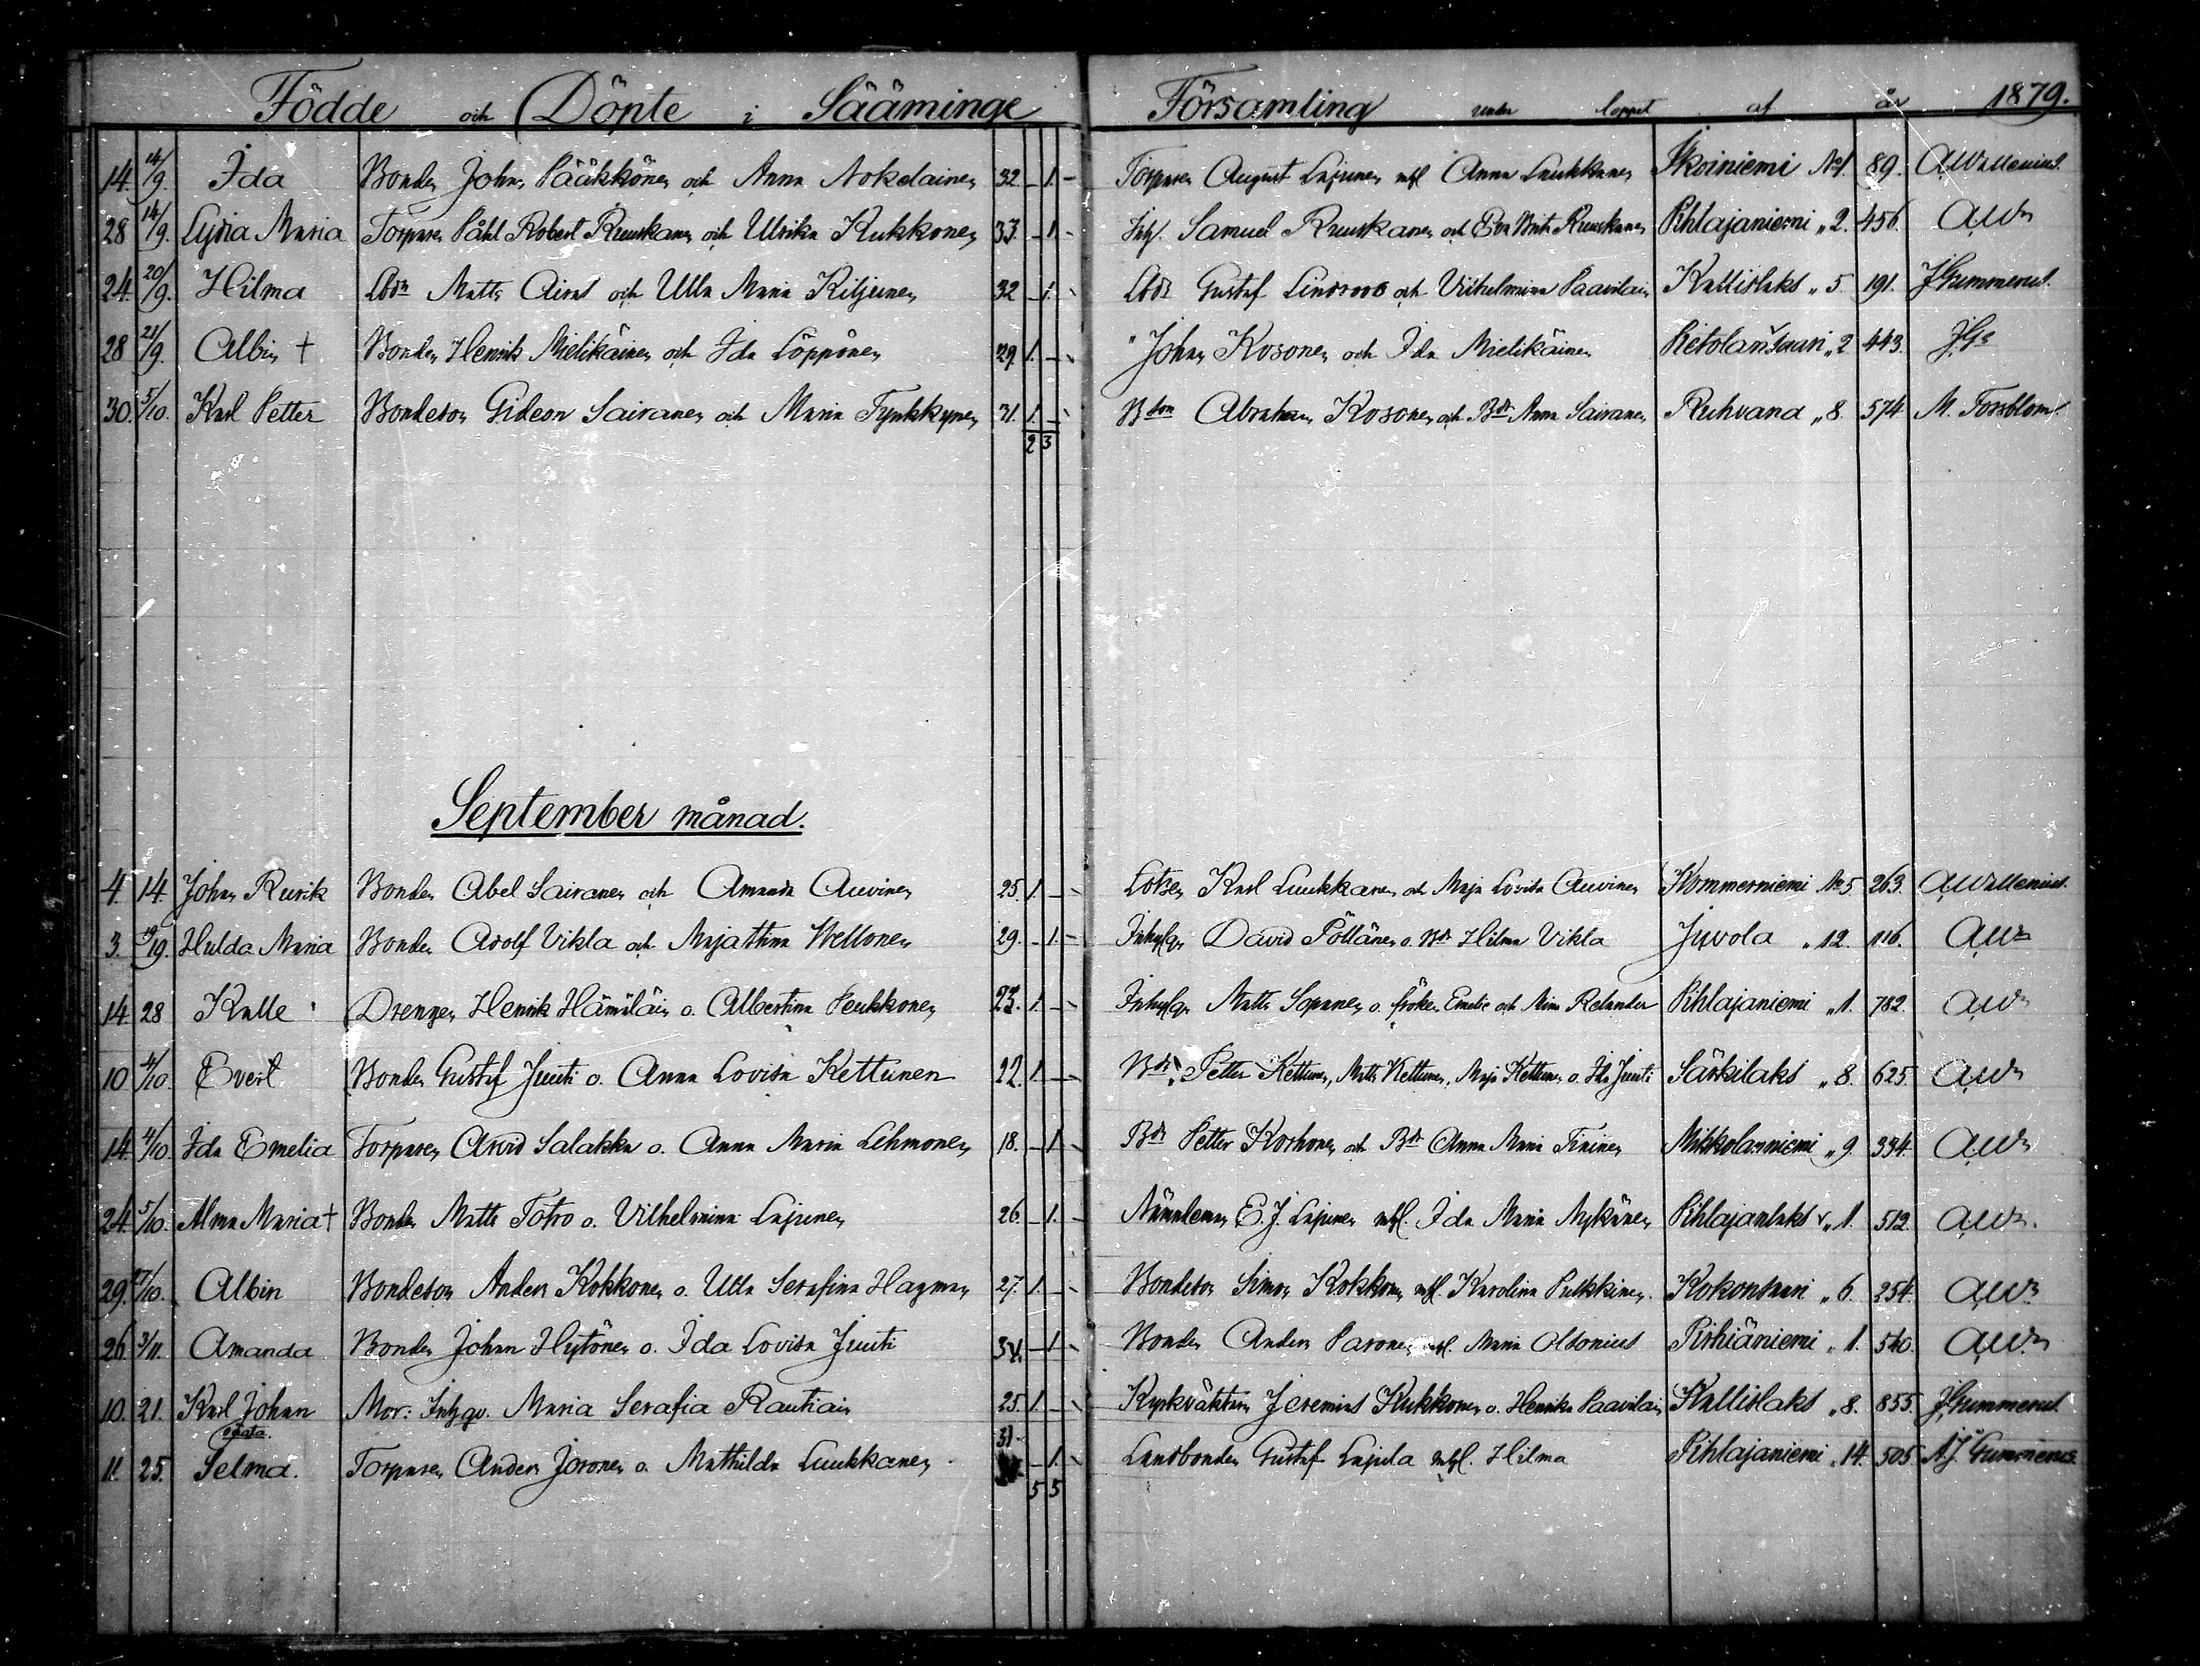 Födde och Döpte i Sääminge Församling under loppet af år 1879.
14. 14/9. Ida Bonden Johan Pääkkönen och Anna Nokelainen 32. – 1. – Torparen August Lajunen mfl Anna Luukkanen Ikoiniemi No 1. 89. AWallenius.
28 14/9. Lydia Maria Torparen Påhl Robert Ruuskanen och Ulrika Kukkonen 33. – 1. Samuel Ruuskanen och Eva Brita Ruuskanen Pihlajaniemi „ 2. 456. AWs
24. 20/9. Hilma Lbdn Matts Airas och Ulla Maria Kiljunen 32 – 1. Lbds Gustaf Lindroos och Vilhelmina Paavilain Kallislaks „ 5. 191. JGummerus.
28 21/9. Albin + Bonden Henrik Mielikäinen och Ida Löppönen 29. 1. – " Johan Kosonen och Ida Mielikäinen Pietolansaari „ 2 443. JGs
30. 5/10. Karl Petter Bondeson Gideon Sairanen och Maria Tynkkynen 31. 1. – Bdson Abraham Kosonen och Bdr Anna Sairanen Ruhvana „ 8. 574. M. Forsblom.
2 3
September månad.
4. 14. Johan Rurik Bonden Abel Sairanen och Amanda Auvinen 25. 1. – Lotsen Karl Luukkanen och Maja Lovisa Auvinen Kommerniemi No 5. 263. AWallenius.
3. 19/9. Hulda Maria Bonden Adolf Vikla och Majastina Wellonen 29. – 1. Inhysg. David Pöllänen o. Bdr Hilma Vikla Juvola „ 12. 116. AWs
14. 28 Kalle Drengen Henrik Hämäläin o. Albertina Peukkonen 23. 1. – Inhysg. Matts Sopanen o. fröken Emelie och Mina Relander Pihlajaniemi „ 1. 782. AWs
10 4/10. Evert Bonden Gustaf Juuti o. Anna Lovisa Kettunen 22. 1. – Bdr. Petter Kettunen, Matts Kettunen, Maja Kettunen o. Ida Juuti Särkilaks „ 8. 625. AWs
14. 4/10. Ida Emelia Torparen Arvid Salakka o. Anna Maria Lehmonen 18. – 1. Bds Petter Korhonen och Bdr Anna Maria Tiainen Mikkolanniemi „ 9. 334. AWs
24. 5/10. Alma Maria + Bonden Matts Totro o. Vilhelmina Lajunen 26. – 1. Nämdeman E. J. Lajunen mfl. Ida Maria Nykänen Pihlajanlaks „ 1. 512. AWs.
29. 17/10. Albin Bondeson Anders Kokkonen o. Ulla Serafina Hagman 27. 1. – Bondeson Simon Kokkonen mfl. Karolina Pulkkinen. Kokonsaari „ 6. 254. AWs.
26. 3/11. Amanda Bonden Johan Hytönen o. Ida Lovisa Juuti 34. – 1. Bonden Anders Paronen mfl. Maria Olsonius Pirhiäniemi „ 1. 540. AWs.
10. 21. Karl Johan Mor: Inhgqv. Maria Serafia Rautiain 25. 1. – Kyrkväktaren Jeremias Kukkonen o. Henrika Paavilain Kallislaks „ 8. 855. JGummerus.
oäkta.
11. 25. Selma. Torparen Anders Joronen o. Mathilda Luukkanen 31. – 1. Landbonden Gustaf Lajula mfl. Hilma Pihlajaniemi „ 14. 505. A.J. Gummerus.
5 5